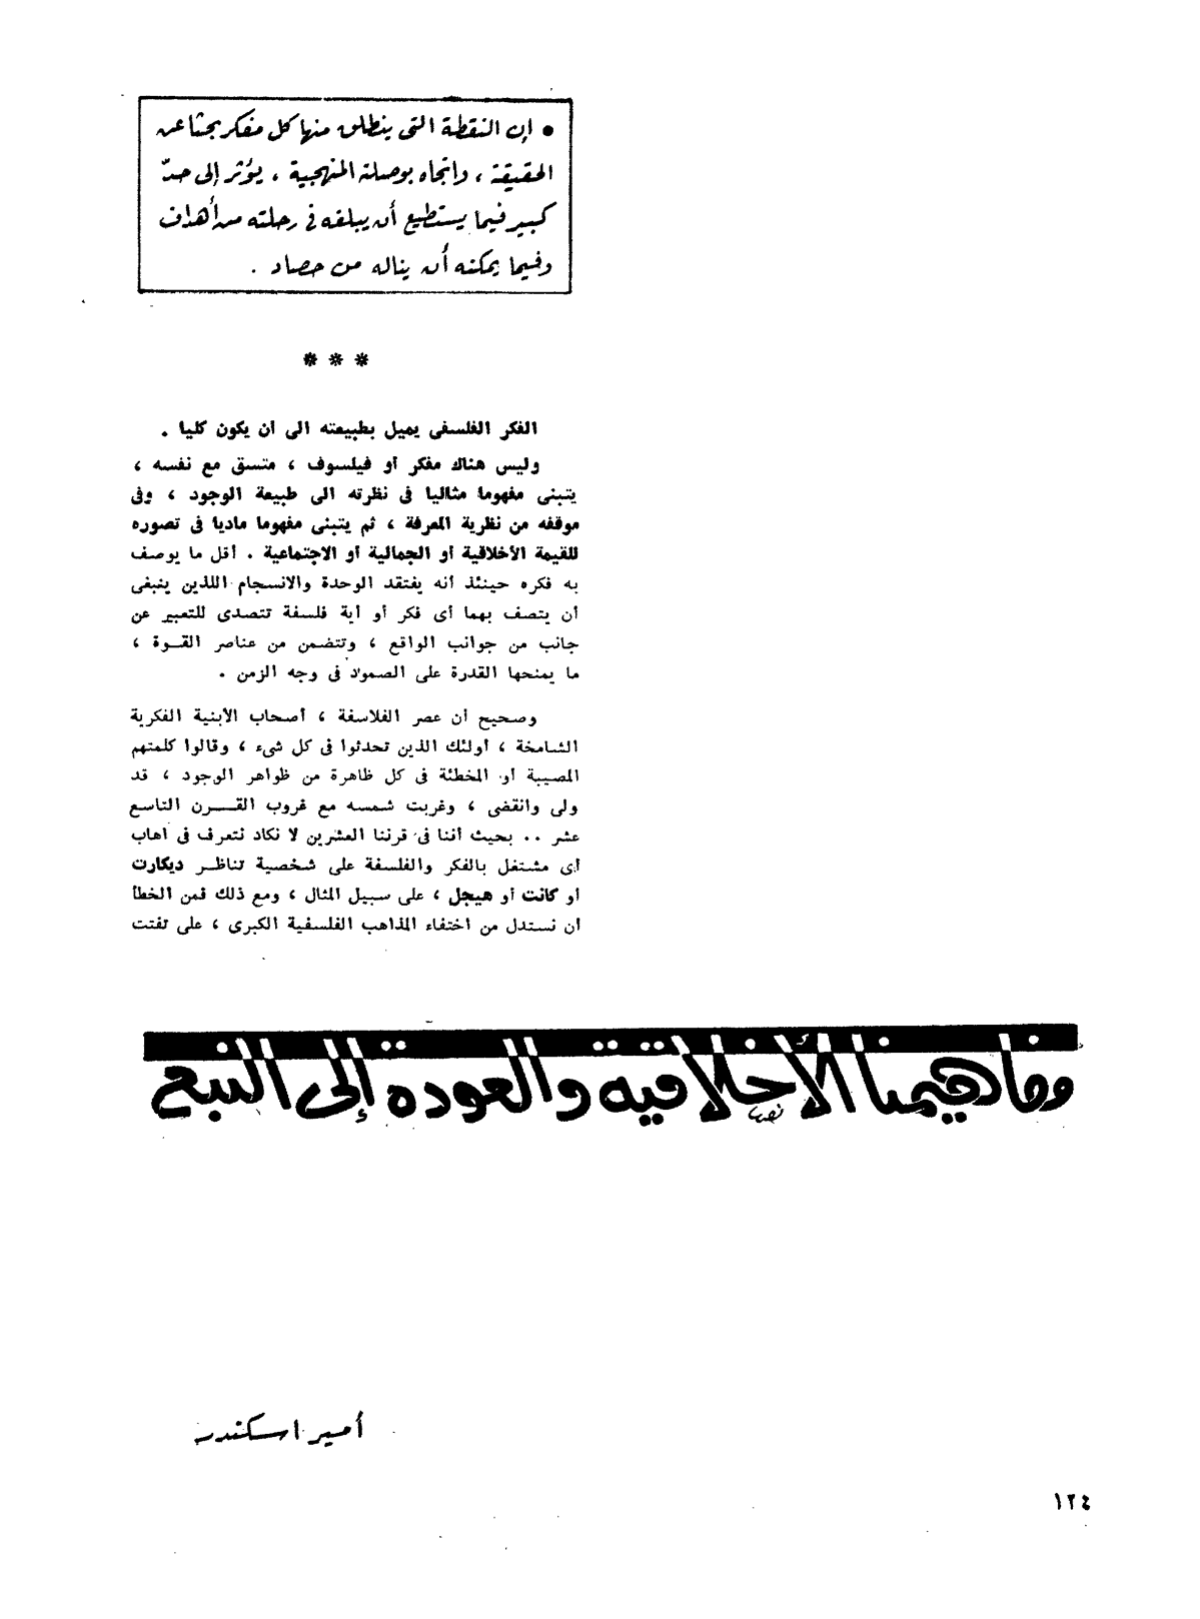 • إن النقطة التى ينطلق منها كل مفكر بحثا عن
الحقيقة ، واتجاه بوصلته المنهجية ، يؤثر إلى حدّ
كبير فيما يستطيع أن يبلغه فى رحلته من أهداف
وفيما يمكنه أن يناله من حصاد .
* * *
الفكر الفلسفى يميل بطبيعته الى ان يكون كليا .
وليس هناك مفكر أو فيلسوف ، متسق مع نفسه ،
يتبنى مفهوما مثاليا فى نظرته الى طبيعة الوجود ، وفى
موقفه من نظرية المعرفة ، ثم يتبنى مفهوما ماديا فى تصوره
للقيمة الأخلاقية أو الجمالية أو الاجتماعية . أقل ما يوصف
به فكره حينئذ أنه يفتقد الوحدة والانسجام اللذين ينبغى
أن يتصف بهما أى فكر أو أية فلسفة تتصدى للتعبير عن
جانب من جوانب الواقع ، وتتضمن من عناصر القـوة ،
ما يمنحها القدرة على الصمود فى وجه الزمن .
وصحيح أن عصر الفلاسفة ، أصحاب الأبنية الفكرية
الشامخة ، أولئك الذين تحدثوا فى كل شىء ، وقالوا كلمتهم
المصيبة أو المخطئة فى كل ظاهرة من ظواهر الوجود ، قد
ولى وانقضى ، وغربت شمسه مع غروب القـــرن التاسع
عشر .. بحيث أننا فى قرننا العشرين لا نكاد نتعرف فى اهاب
أى مشتغل بالفكر والفلسفة على شخصية تناظـر ديكارت
أو كانت أو هيجل ، على سبيل المثال ، ومع ذلك فمن الخطأ
ان نستدل من اختفاء المذاهب الفلسفية الكبرى ، على تفتت
مفاهيمنا الأخلاقية والعودة إلى النبع
أمير اسكندر
١٢٤